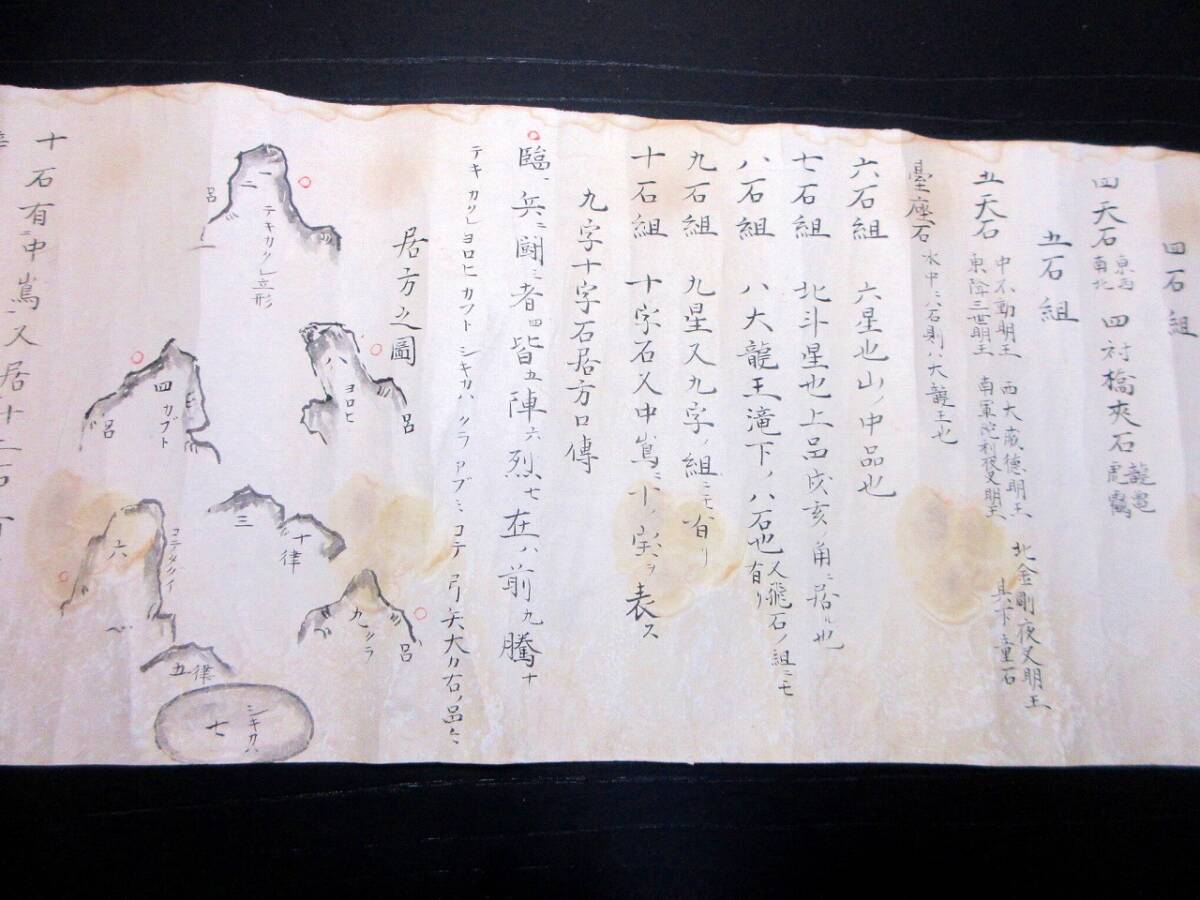 四石組
四天石 東西 南北 四対橋夾石 龍亀 虎
五石組
五天石 中不動明王 西大威徳明王 北金剛夜叉明王
東降三世明王 南軍陀利夜叉明王 其下童石
臺座石 水中ニハ石則ハ大龍王也
六石組 六星也山ノ中品也
七石組 北斗星也上品戌亥ノ角ニ居ル也
八石組 八大龍王滝下ノ八石也 又飛石ノ組ニモ有リ
九石組 九星又九字ノ組ニモ有リ
十石組 十字石又中嶌ニ十ノ字ヲ表ス
九字十字石居方口傳
臨一兵二闘三者四皆五陣六烈七在八前九騰十
テキカクレ ヨロヒ カフト シキカハ クラ アブミ コテ 弓矢大刀右ノ品々
居方之圖
二 テキカクレ立形
呂
八 ヨロヒ
呂
四 カブト
呂
三
十 律
六
コテ
九 クラ
呂
五 律
七 シキカハ
十石有ニ中嶌又居十二石